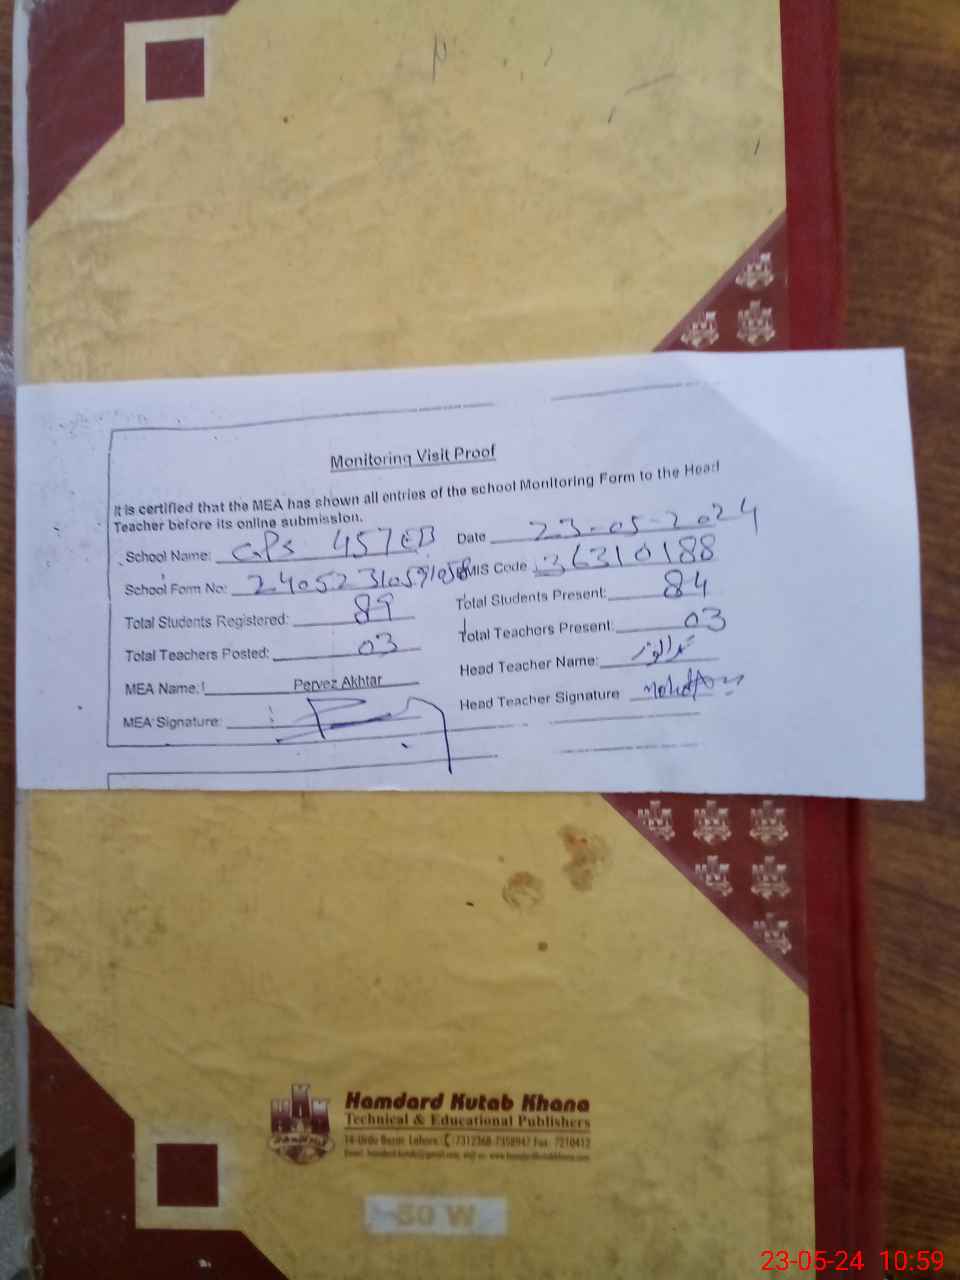 Monitoring Visit Proof
It is certified that the MEA has shown all entries of the school Monitoring Form to the Head
Teacher before its online submission.
School Name: GPS 457 EB Date 23-05-2024
School Form No: MIS Code 36310188
Total Students Registered: 89 Total Students Present: 84
Total Teachers Posted: 03 Total Teachers Present: 03
MEA Name: Pervez Akhtar Head Teacher Name:
MEA Signature: Head Teacher Signature
Hamdard Kutab Khana
Technical & Educational Publishers
14-Urdu Bazar Lahore. 7312368-7358947 Fax: 7210412
50 W
23-05-24 10:59